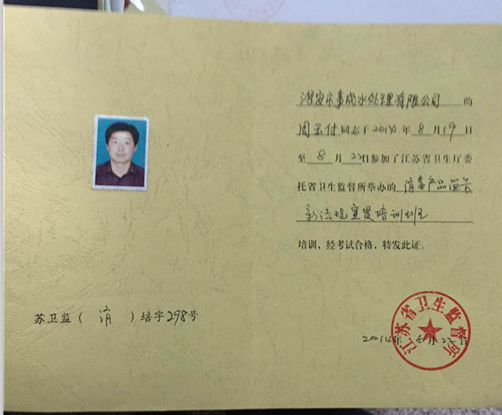 淮安市嘉成水处理有限公司 的
周玉付 同志于 2014 年 8 月 19 日
至 8 月 22日参加了江苏省卫生厅委
托省卫生监督所举办的 消毒产品监管
新法规宣贯培训班
培训，经考试合格，特发此证。
江苏省卫生监督所
苏卫监（ 消 ）培字298号
2014年 8月22日